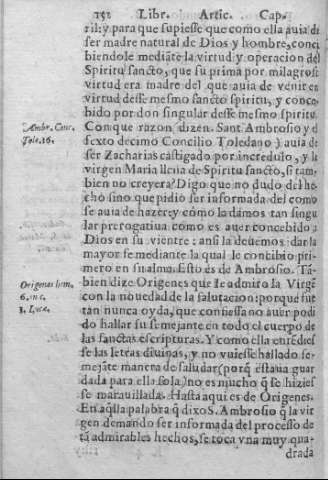 152 Libr. Artic. Cap.
ril: y para que supiesse que como ella auia de
ser madre natural de Dios y hombre, conci
biendole mediãte la virtud y operacion del
Spiritu sancto, que su prima por milagrosa
virtud era madre del que auia de venir en
virtud desse mesmo sancto spiritu, y conce
bido por don singular desse mesmo spiritu.
Con que razon (dizen Sant Ambrosio y el
sexto decimo Concilio Toledano) auia de
ser Zacharias castigado por incredulo, y la
virgen Maria llena de Spiritu sancto, si tam
bien no creyera? Digo que no dudo del he
cho sino que pidio ser informada del como
se auia de hazer: y cómo la dámos tan singu
lar prerogatiua cómo es auer concebido a
Dios en su vientre: ansi la deuemos dar la
mayor fe mediante la qual le concibio pri-
mero en su alma. Esto es de Ambrosio. Tã-
bien dize Origenes que se admiro la Virgẽ
con la nouedad de la salutacion: porque fue
tan nunca oyda, que confiessa no auer podi
do hallar su semejante en todo el cuerpo de
las sanctas escripturas. Y como ella entẽdies
se las letras diuinas, y no vuiesse hallado se-
mejãte manera de saludar (porq̃ estaua guar
dada para ella sola) no es mucho q̃ se hizies
se marauillada. Hasta aqui es de Origenes.
En aq̃lla palabra q̃ dixo S. Ambrosio q̃ la vir
gen demando ser informada del processo de
tã admirables hechos, se toca vna muy qua-
drada
Ambr. Conc.
Tole. 16.
Origenes hom.
6. in c.
1. Lucæ.